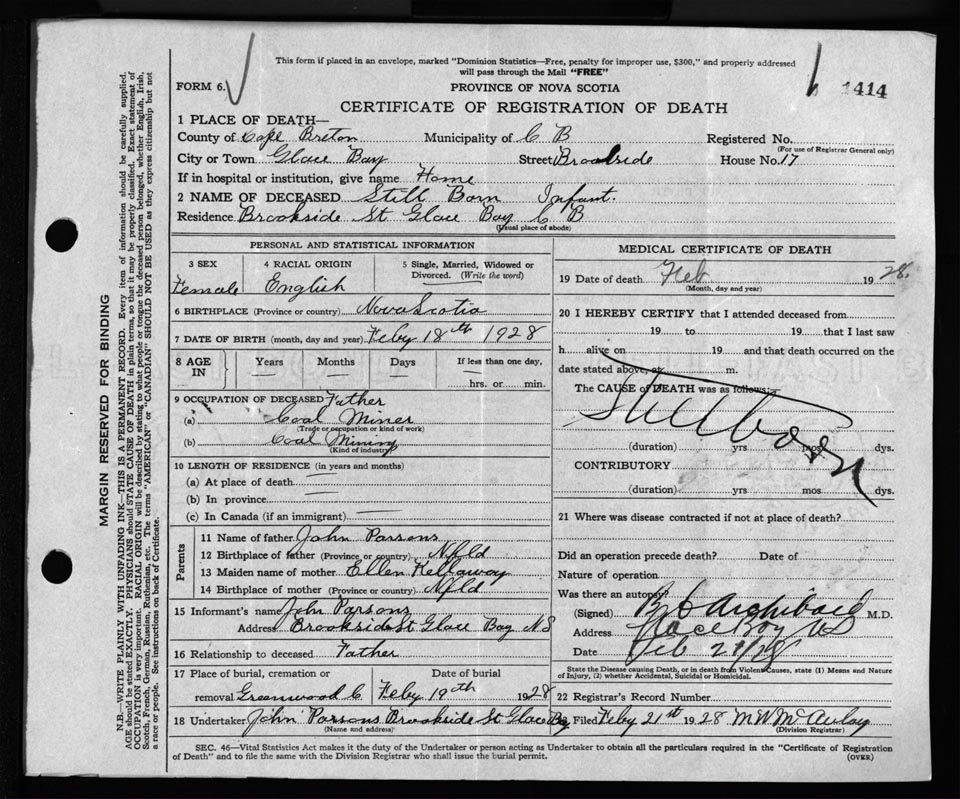 This form if placed in an envelope, marked "Dominion Statistics—Free, penalty for improper use, $300," and properly addressed
will pass through the Mail "FREE"
FORM 6. PROVINCE OF NOVA SCOTIA 1414
CERTIFICATE OF REGISTRATION OF DEATH
1 PLACE OF DEATH—
County of Cape Breton Municipality of C B Registered No.
(For use of Registrar General only)
City or Town Glace Bay Street Brookside House No. 17
If in hospital or institution, give name Home
2 NAME OF DECEASED Still Born Infant.
Residence Brookside St Glace Bay C B
(Usual place of abode)
PERSONAL AND STATISTICAL INFORMATION
3 SEX 4 RACIAL ORIGIN 5 Single, Married, Widowed or
Divorced. (Write the word)
Female English
6 BIRTHPLACE (Province or country) Nova Scotia
7 DATE OF BIRTH (month, day and year) Feby 18th 1928
8 AGE IN Years Months Days If less than one day,
hrs. or min.
9 OCCUPATION OF DECEASED Father
(a) Coal Miner
(Trade or occupation or kind of work)
(b) Coal Mining
(Kind of industry)
10 LENGTH OF RESIDENCE (in years and months)
(a) At place of death
(b) In province
(c) In Canada (if an immigrant)
Parents
11 Name of father John Parsons
12 Birthplace of father (Province or country) Nfld
13 Maiden name of mother Ellen Kellaway
14 Birthplace of mother (Province or country) Nfld
15 Informant's name John Parsons
Address Brookside St Glace Bay N S
16 Relationship to deceased Father
17 Place of burial, cremation or Date of burial
removal Greenwood C Feby 19th 1928
18 Undertaker John Parsons Brookside St Glace Bay
(Name and address)
MEDICAL CERTIFICATE OF DEATH
19 Date of death Feb 1928.
(Month, day and year)
20 I HEREBY CERTIFY that I attended deceased from
19 to 19 that I last saw
h alive on 19 and that death occurred on the
date stated above, at m.
The CAUSE of DEATH was as follows:
Stillborn
(duration) yrs mos dys.
CONTRIBUTORY
(duration) yrs mos dys.
21 Where was disease contracted if not at place of death?
Did an operation precede death? Date of
Nature of operation
Was there an autopsy?
(Signed) Archibald M.D.
Address Glace Bay NS
Date Feb 28
State the Disease causing Death, or in death from Violent Causes, state (1) Means and Nature
of Injury, (2) whether Accidental, Suicidal or Homicidal.
22 Registrar's Record Number
Filed Feby 21st 1928 M W McAulay
(Division Registrar)
SEC. 46—Vital Statistics Act makes it the duty of the Undertaker or person acting as Undertaker to obtain all the particulars required in the "Certificate of Registration
of Death" and to file the same with the Division Registrar who shall issue the burial permit. (OVER)
MARGIN RESERVED FOR BINDING
N.B.—WRITE PLAINLY WITH UNFADING INK—THIS IS A PERMANENT RECORD. Every item of information should be carefully supplied.
AGE should be stated EXACTLY. PHYSICIANS should STATE CAUSE OF DEATH in plain terms, so that it may be properly classified. Exact statement of
OCCUPATION is very important. RACIAL ORIGIN will be described by stating to what people or tongue the deceased person belonged, whether English, Irish,
Scotch, French, German, Russian, Ruthenian, etc. The terms "AMERICAN" or "CANADIAN" SHOULD NOT BE USED as they express citizenship but not
a race or people. See instructions on back of Certificate.